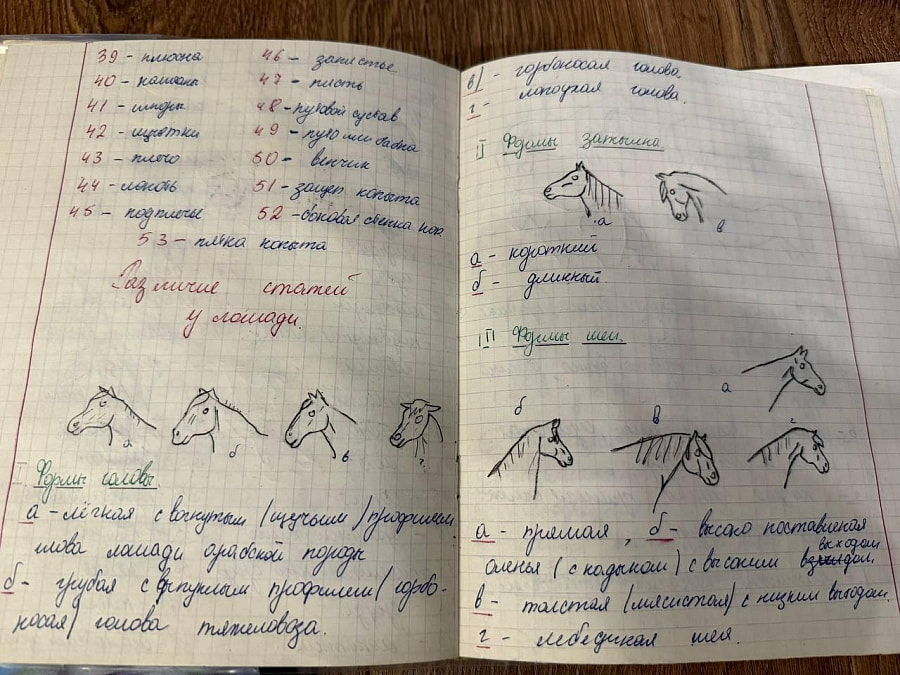 39 - плюсна
40 - каштаны
41 - шпоры
42 - щётки
43 - плечо
44 - локоть
45 - подплечье
46 - запястье
47 - пясть
48 - путовый сустав
49 - путо или бабка
50 - венчик
51 - зацеп копыта
52 - боковая стенка коп.
53 - пятка копыта
Различие статей
у лошади.
а
б
в
г
I Формы головы
а - лёгкая с вогнутым (щучьим) профилем
голова лошади арабской породы
б - грубая с выпуклым профилем (горбо-
носая) голова тяжеловоза.
в) - горбоносая голова
г - лопоухая голова.
II Формы затылка
а
в
а - короткий
б - длинный
III Формы шеи.
а
б
в
г
а - прямая, б - высоко поставленая
выходом
оленья (с кадыком) с высоким
в - толстая (мясистая) с низким выходом.
г - лебединая шея.